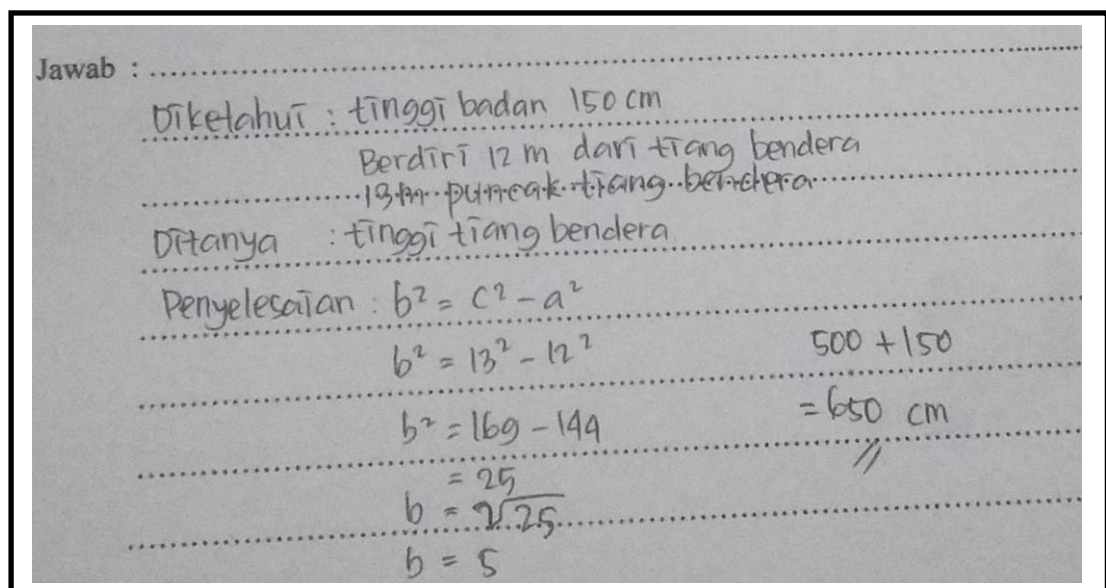 Jawab : ........................................
Diketahui : tinggi badan 150 cm
Berdiri 12 m dari tiang bendera
13 m puncak tiang bendera
Ditanya : tinggi tiang bendera
Penyelesaian : b² = c² - a²
b² = 13² - 12²
b² = 169 - 144
= 25
b = √25
b = 5
500 + 150
= 650 cm